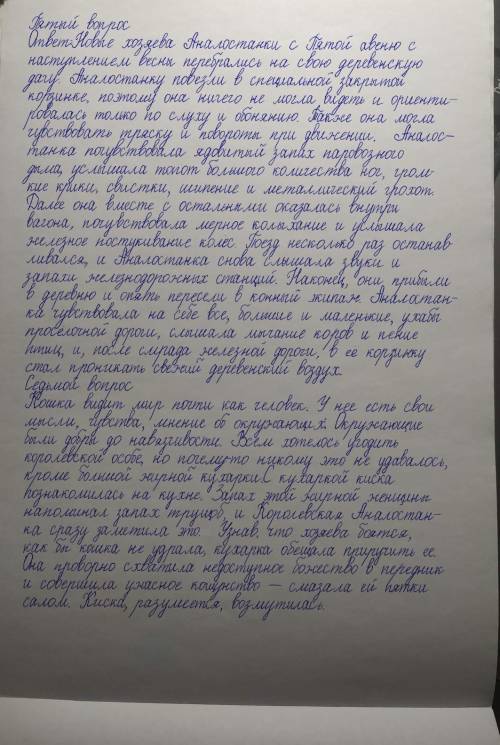 Пятый вопрос
Ответ:Новые хозяева Аналостанки с Пятой авеню с
наступлением весны перебрались на свою деревенскую
дачу. Аналостанку повезли в специальной закрытой
корзинке, поэтому она ничего не могла видеть и ориенти-
ровалась только по слуху и обонянию. Также она могла
чувствовать тряску и повороты при движении. Аналос-
танка почувствовала ядовитый запах паровозного
дыма, услышала топот большого количества ног, гром-
кие крики, свистки, шипение и металлический грохот.
Далее она вместе с остальными оказалась внутри
вагона, почувствовала мерное колыхание и услышала
железное постукивание колес. Поезд несколько раз останав-
ливался, и Аналостанка снова слышала звуки и
запахи железнодорожных станций. Наконец, они прибыли
в деревню и опять пересели в конный экипаж. Аналостан-
ка чувствовала на себе все, большие и маленькие, ухабы
проселочной дороги, слышала мычание коров и пение
птиц, и, после смрада железной дороги, в ее корзинку
стал проникать свежий деревенский воздух.
Седьмой вопрос
Кошка видит мир почти как человек. У нее есть свои
мысли, чувства, мнение об окружающих. Окружающие
были добры до навязчивости. Всем хотелось угодить
королевской особе, но почему-то никому это не удавалось,
кроме большой жирной кухарки.С кухаркой киска
познакомилась на кухне. Запах этой жирной женщины
напоминал запах трущоб, и Королевская Аналостан-
ка сразу заметила это. Узнав, что хозяева боятся,
как бы кошка не удрала, кухарка обещала приручить ее.
Она проворно схватила недоступное божество в передник
и совершила ужасное кощунство — смазала ей пятки
салом. Киска, разумеется, возмутилась.